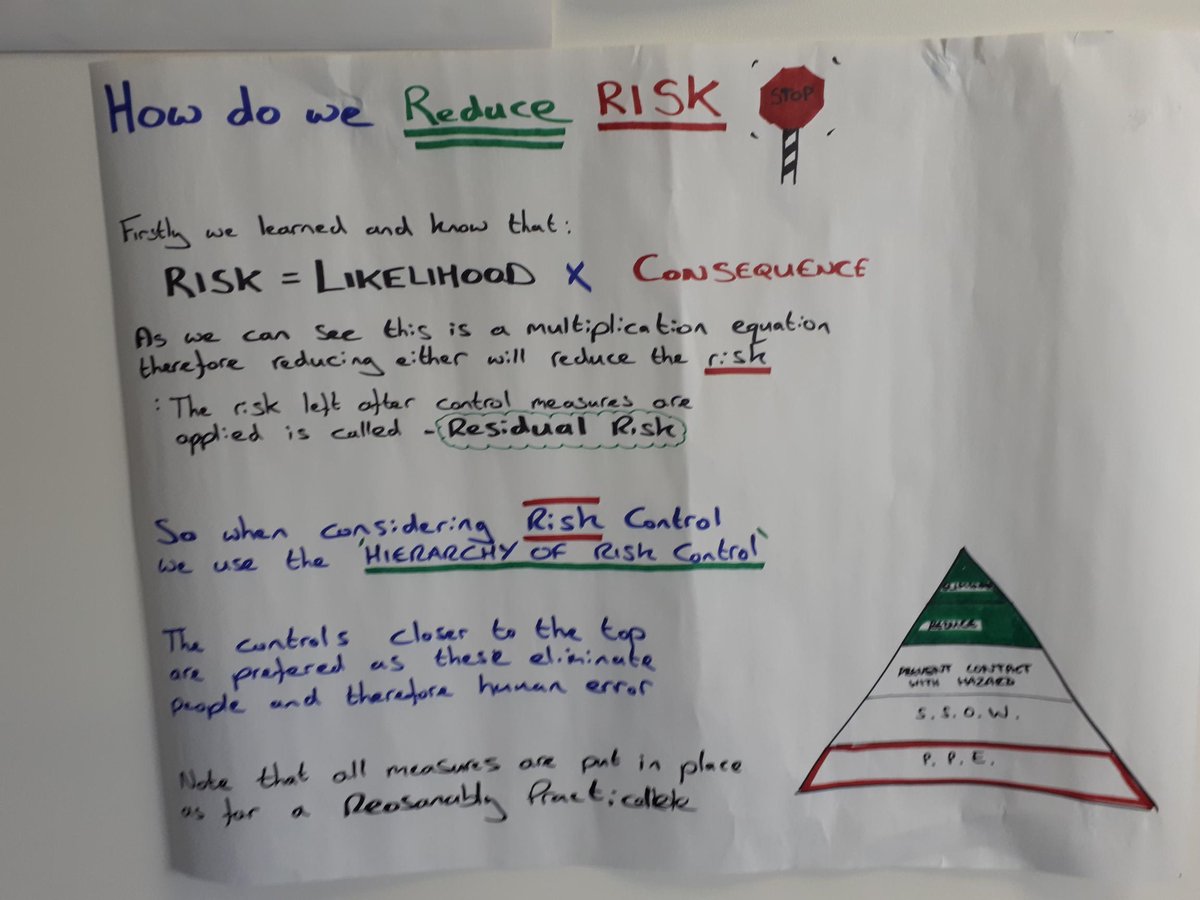 How do we Reduce RISK
STOP
Firstly we learned and know that:
RISK = LIKELIHOOD X CONSEQUENCE
As we can see this is a multiplication equation
therefore reducing either will reduce the risk
: The risk left after control measures are
applied is called - Residual Risk
So when considering Risk Control
we use the 'HIERARCHY OF RISK Control'
The controls closer to the top
are prefered as these eliminate
people and therefore human error
Note that all measures are put in place
as far a Reasonably Practicable
REDUCE
PREVENT CONTACT
WITH HAZARD
S.S.O.W.
P.P.E.